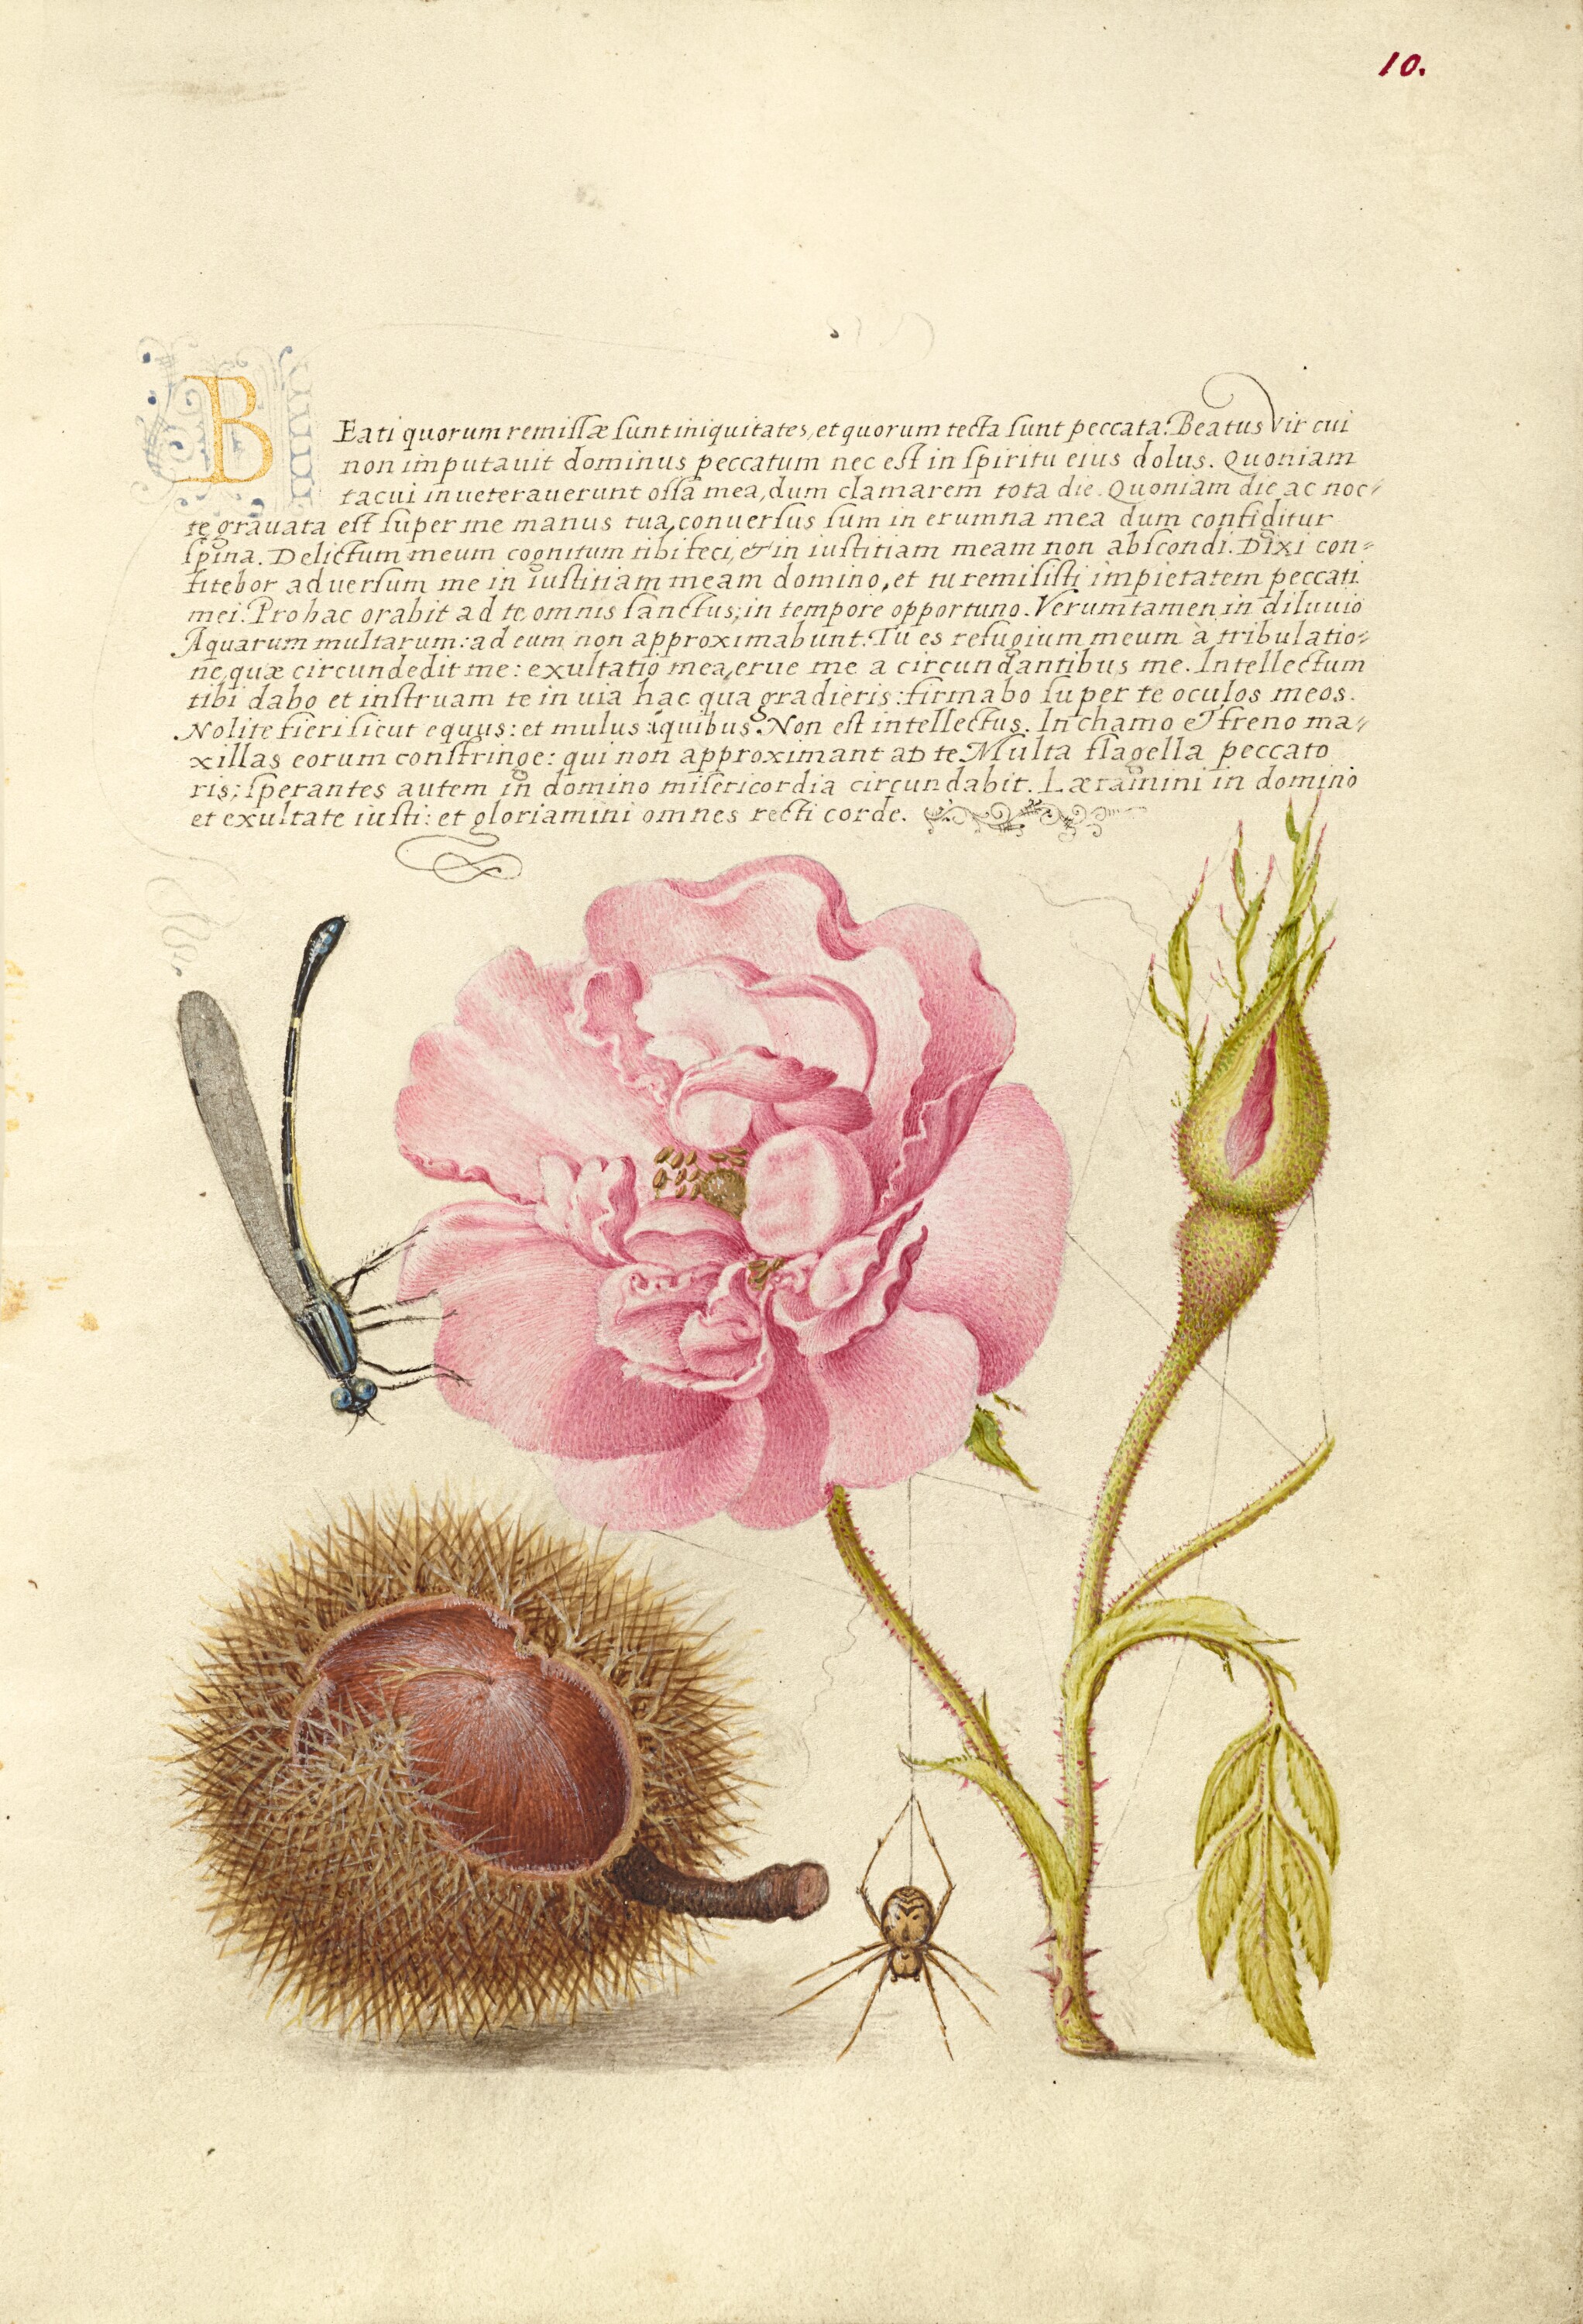 10.
BEati quorum remissæ sunt iniquitates, et quorum tecta sunt peccata. Beatus Vir cui
non imputauit dominus peccatum nec est in spiritu eius dolus. Quoniam
tacui inueterauerunt ossa mea, dum clamarem tota die. Quoniam die ac noc=
te grauata est super me manus tua, conuersus sum in erumna mea dum configitur
spina. Delictum meum cognitum tibi feci, et in iustitiam meam non abscondi. Dixi con=
fitebor aduersum me in iustitiam meam domino, et tu remisisti impietatem peccati
mei. Pro hac orabit ad te, omnis sanctus, in tempore opportuno. Verumtamen in diluuio
Aquarum multarum: ad eum non approximabunt. Tu es refugium meum à tribulatio=
ne, quæ circundedit me: exultatio mea, erue me a circundantibus me. Intellectum
tibi dabo et instruam te in uia hac qua gradieris: firmabo super te oculos meos.
Nolite fieri sicut equus: et mulus quibus Non est intellectus. In chamo et freno ma=
xillas eorum constringe: qui non approximant ad te. Multa flagella peccato
ris, sperantes autem in domino misericordia circundabit. Lætamini in domino
et exultate iusti: et gloriamini omnes recti corde.